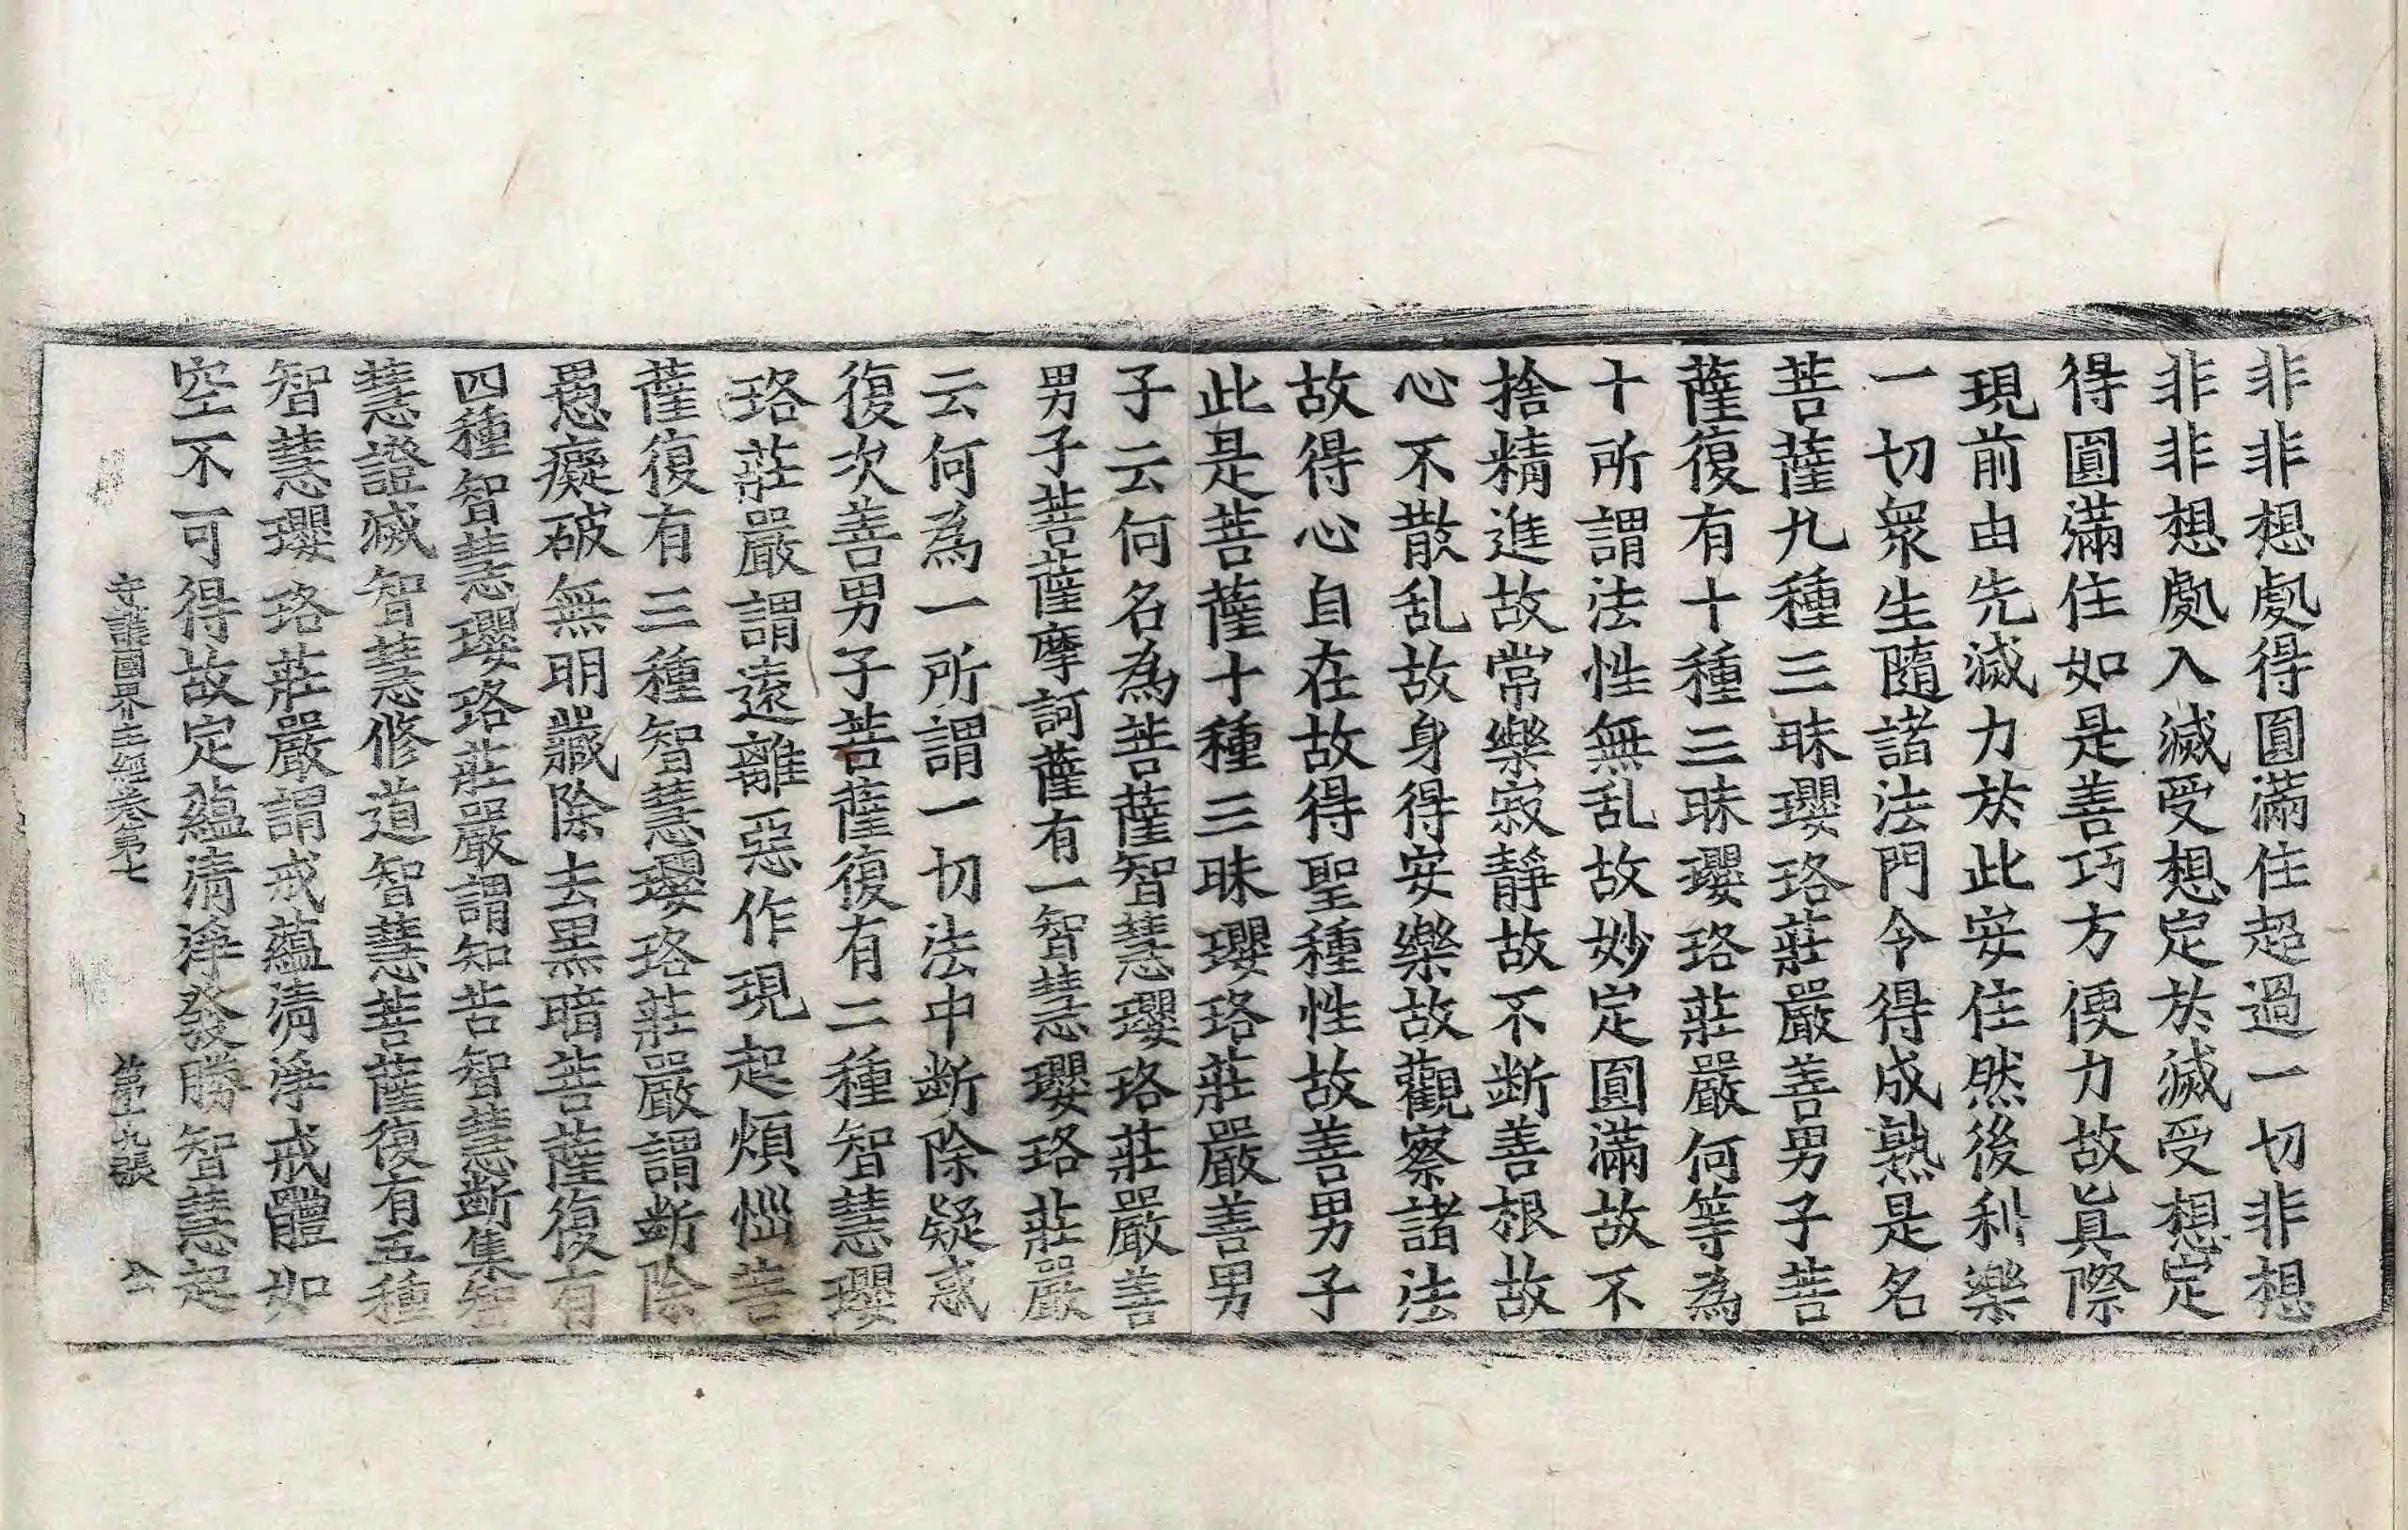 非非想處得圓滿住超過一切非想
非非想處入滅受想定於滅受想定
得圓滿住如是善巧方便力故眞際
現前由先滅力於此安住然後利樂
一切衆生隨諸法門令得成熟是名
菩薩九種三昧瓔珞莊嚴善男子菩
薩復有十種三昧瓔珞莊嚴何等為
十所謂法性無乱故妙定圓滿故不
捨精進故常樂寂靜故不断善根故
心不散乱故身得安樂故觀察諸法
故得心自在故得聖種性故善男子
此是菩薩十種三昧瓔珞莊嚴善男
子云何名為菩薩智慧瓔珞莊嚴善
男子菩薩摩訶薩有一智慧瓔珞莊嚴
云何為一所謂一切法中断除疑惑
復次善男子菩薩復有二種智慧瓔
珞莊嚴謂遠離惡作現起煩惱菩
薩復有三種智慧瓔珞莊嚴謂断除
愚癡破無明藏除去黒暗菩薩復有
四種智慧瓔珞莊嚴謂知苦智慧断集智
慧證滅智慧修道智慧菩薩復有五種
智慧瓔珞莊嚴謂戒蘊清淨戒體如
空不可得故定蘊清淨發勝智慧起
守護國界主經卷第七 第十九張